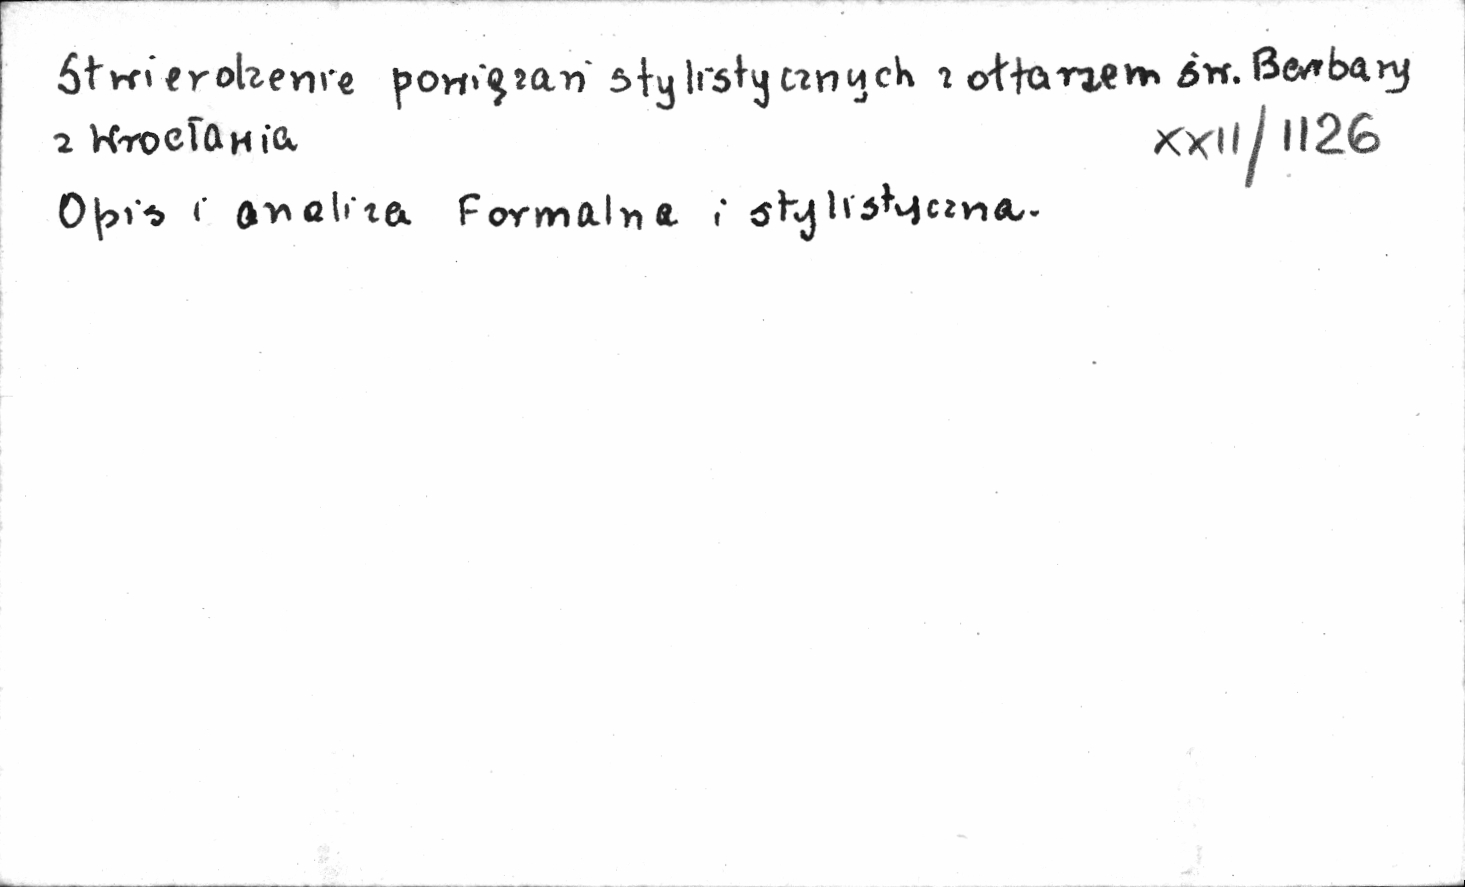 Stwierdzenie powiązań stylistycznych z ołtarzem św. Barbary
z Wrocławia XXII/1126
Opis i analiza formalna i stylistyczna.